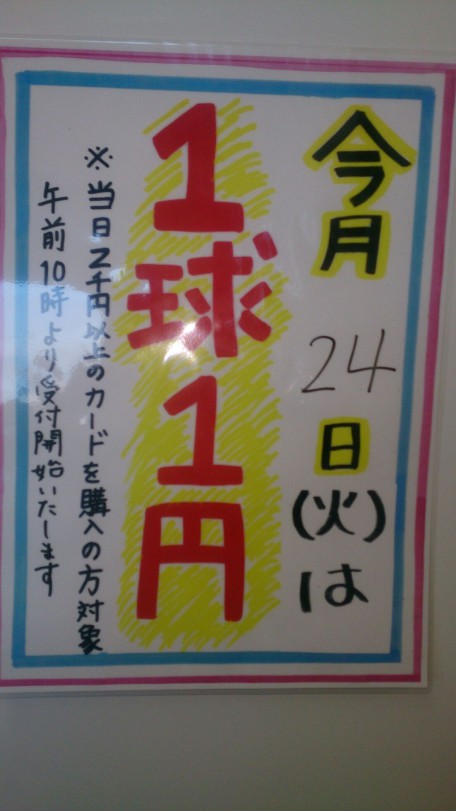 今月24日(火)は
1球1円
※当日2千円以上のカードを購入の方対象
午前10時より受付開始いたします